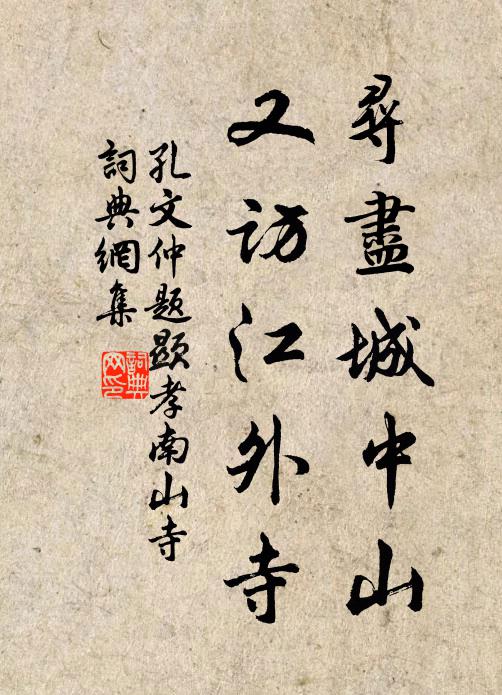 尋盡城中山
又訪江外寺
孔文仲題顯孝南山寺
詞典網集
詞典網印